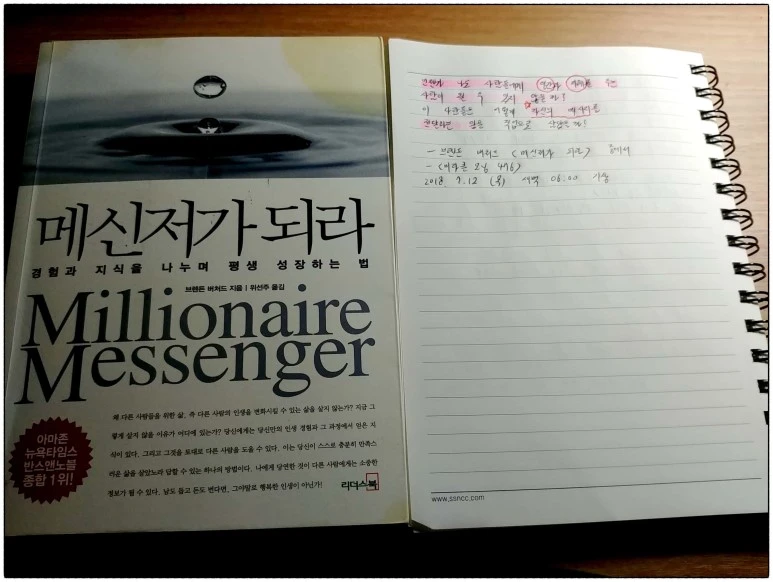 메신저가 되라
경험과 지식을 나누며 평생 성장하는 법
브렌든 버처드 지음 | 위선주 옮김
Millionaire
Messenger
왜 다른 사람들을 위한 삶, 즉 다른 사람의 인생을 변화시킬 수 있는 삶을 살지 않는가? 지금 그
렇게 살지 않을 이유가 어디에 있는가? 당신에게는 당신만의 인생 경험과 그 과정에서 얻은 지
식이 있다. 그리고 그것을 토대로 다른 사람을 도울 수 있다. 이는 당신이 스스로 충분히 만족스
러운 삶을 살았노라 답할 수 있는 하나의 방법이다. 나에게 당연한 것이 다른 사람에게는 소중한
정보가 될 수 있다. 남도 돕고 돈도 번다면, 그야말로 행복한 인생이 아닌가!
아마존
뉴욕타임스
반스앤노블
종합 1위!
리더스북
사람들에게
이 사람들은 어떻게 자신의 메시지를
- 브렌든 버처드 <메신저가 되라> 중에서
2018 7. 12 (목) 새벽 06:00 기상
www.ssncc.com